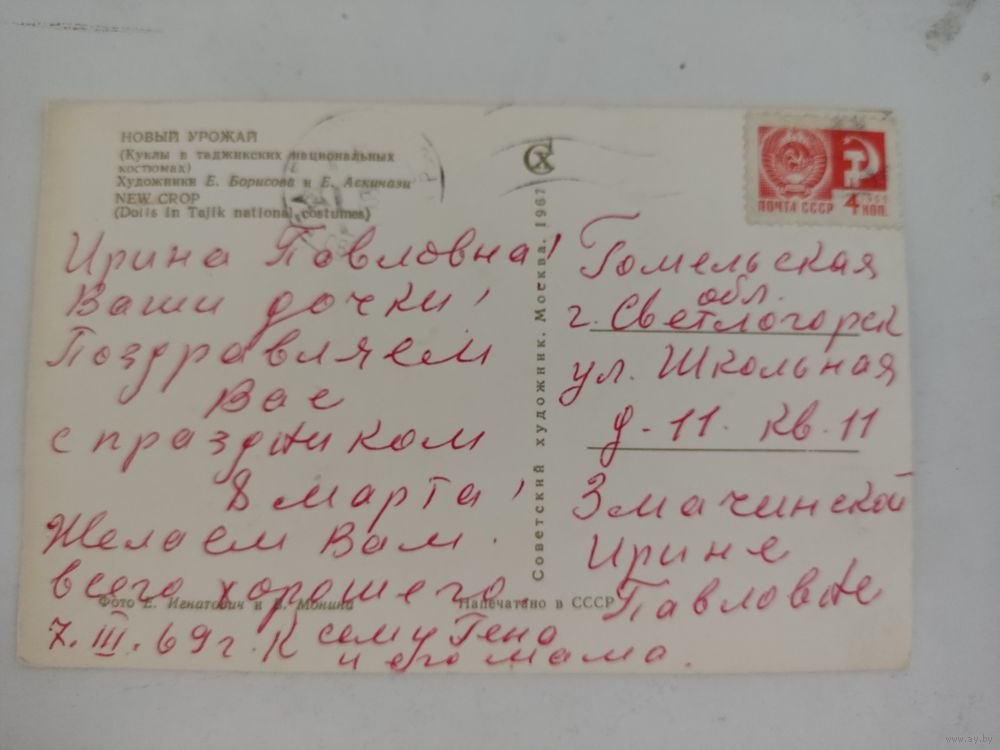 НОВЫЙ УРОЖАЙ
(Куклы в таджикских национальных
костюмах)
Художники Е. Борисова и Е. Аскинази
NEW CROP
(Dolls in Tajik national costumes)
Ирина Павловна!
Ваши дочки!
Поздравляем
Вас
с праздником
8 марта!
Желаем Вам
всего хорошего.
7. III. 69 г. К сему Гена
и его мама.
Фото Е. Игнатович и В. Монина
Напечатано в СССР
Советский художник. Москва. 1967
СХ
ПОЧТА СССР 4 КОП.
1966
Гомельская
обл.
г. Светлогорск
ул. Школьная
д. 11. кв. 11
Змачинской
Ирине
Павловне
www.ay.by